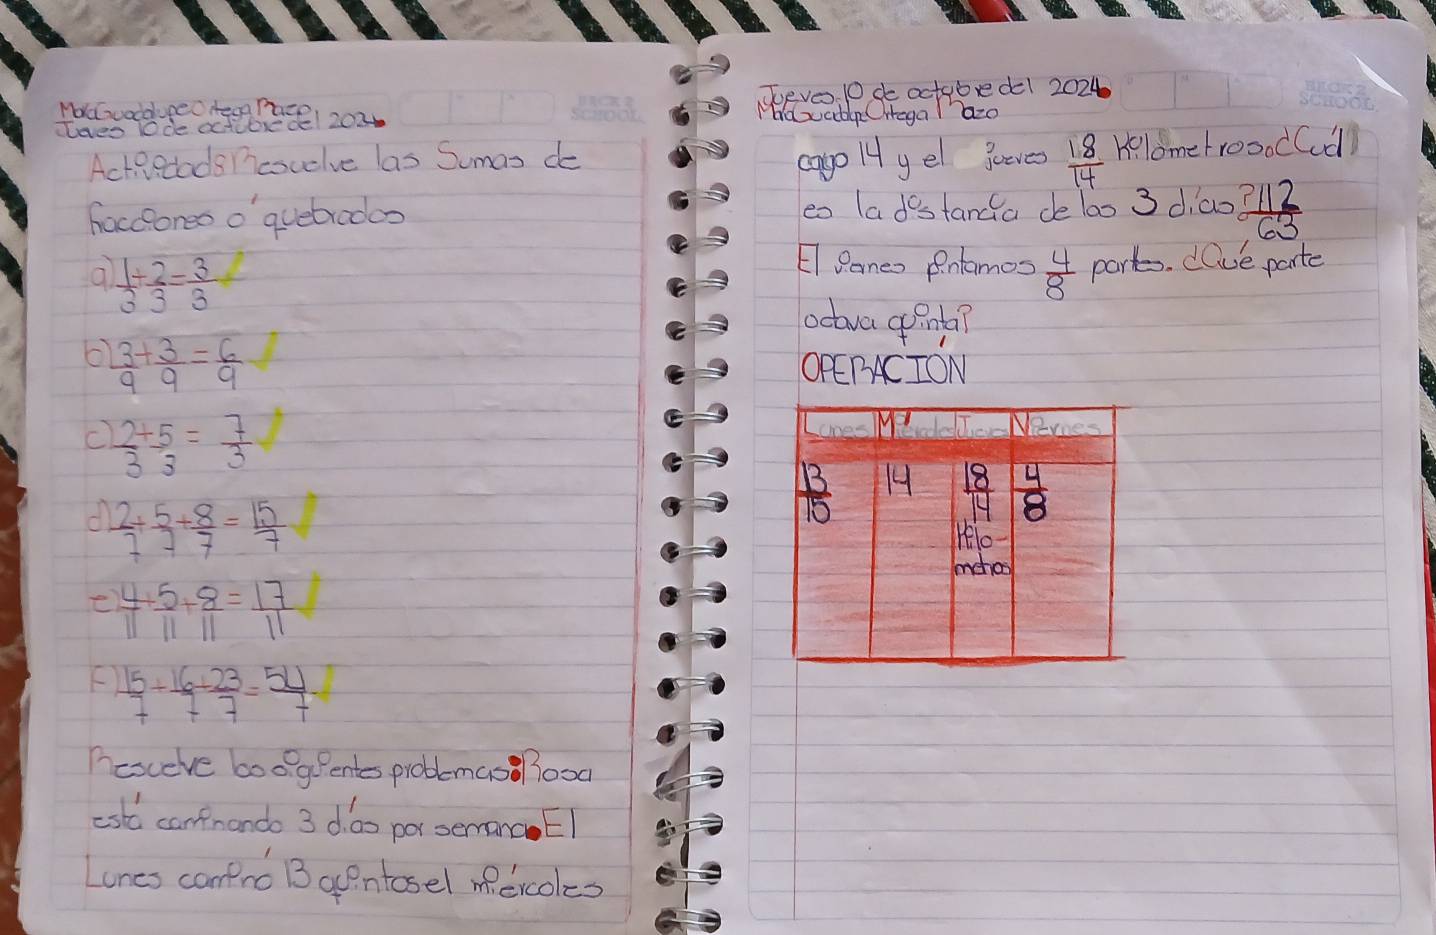 María Guadalupe Ortega Razo
Jueves 10 de octubre del 2024
Actividad: Resuelve las Sumas de
fracciones o quebrados
a) 1/3 + 2/3 = 3/3
b) 3/9 + 3/9 = 6/9
c) 2/3 + 5/3 = 7/3
d) 2/7 + 5/7 + 8/7 = 15/7
e) 4/11 + 5/11 + 8/11 = 17/11
F) 15/7 + 16/7 + 23/7 = 54/7
Resuelve los siguientes problemas: Rosa
está caminando 3 días por semana. El
Lunes caminó 13 quintos el miércoles
Jueves 10 de octubre del 2024
María Guadalupe Ortega Razo
14 y el jueves 18/14 Kilometros. ¿Cuál
es la distancia de los 3 días? 112/63
El pintamos 4/8 partes. ¿Qué parte
octava quinta?
OPERACIÓN
Lunes Miércoles Jueves Viernes
13/15 14 18/14 4/8
Kilo
metros